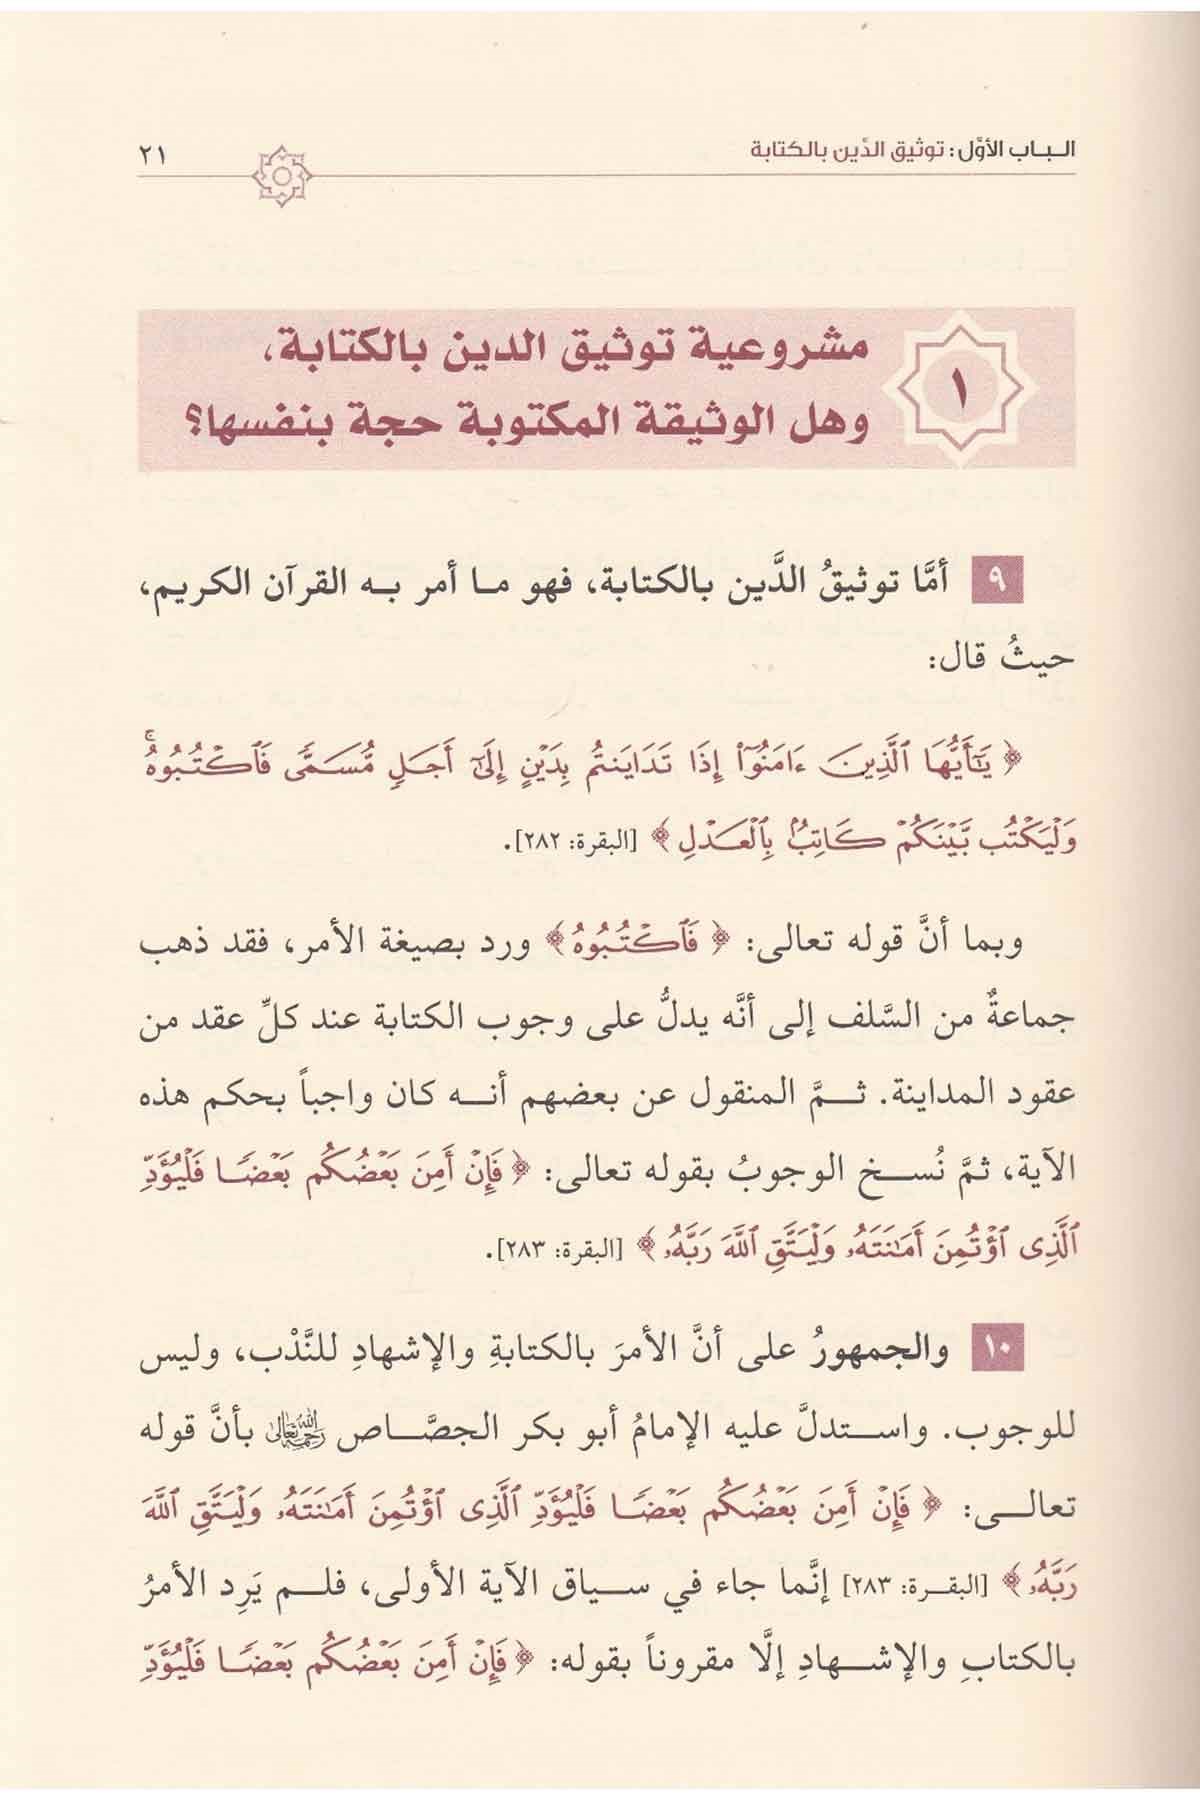 الـبـاب الأوَّل: توثيق الدَّين بالكتابة
٢١
١
مشروعية توثيق الدين بالكتابة،
وهل الوثيقة المكتوبة حجة بنفسها؟
٩ أمَّا توثيقُ الدَّين بالكتابة، فهو مـا أمر بـه القرآن الكريم،
حيثُ قال:
﴿ يَٰٓأَيُّهَا ٱلَّذِينَ ءَامَنُوٓا۟ إِذَا تَدَايَنتُم بِدَيْنٍ إِلَىٰٓ أَجَلٍ مُّسَمًّى فَٱكْتُبُوهُ ۚ
وَلْيَكْتُب بَّيْنَكُمْ كَاتِبٌۢ بِٱلْعَدْلِ ﴾ [البقرة: ٢٨٢].
وبما أنَّ قوله تعالى: ﴿ فَٱكْتُبُوهُ ﴾ ورد بصيغة الأمر، فقد ذهب
جماعةٌ من السَّلف إلى أنَّه يدلُّ على وجوب الكتابة عند كلِّ عقد من
عقود المداينة. ثـمَّ المنقول عن بعضهم أنـه كان واجباً بحكم هذه
الآية، ثمَّ نُسـخ الوجوبُ بقوله تعالى: ﴿ فَإِنْ أَمِنَ بَعْضُكُم بَعْضًا فَلْيُؤَدِّ
ٱلَّذِى ٱؤْتُمِنَ أَمَٰنَتَهُۥ وَلْيَتَّقِ ٱللَّهَ رَبَّهُۥ ﴾ [البقرة: ٢٨٣].
١٠ والجمهورُ على أنَّ الأمرَ بالكتابةِ والإشهادِ للنَّدْب، وليس
للوجوب. واسـتدلَّ عليه الإمامُ أبو بكر الجصَّـاص رحمه الله تعالى بأنَّ قوله
تعالـى: ﴿ فَإِنْ أَمِنَ بَعْضُكُم بَعْضًا فَلْيُؤَدِّ ٱلَّذِى ٱؤْتُمِنَ أَمَٰنَتَهُۥ وَلْيَتَّقِ ٱللَّهَ
رَبَّهُۥ ﴾ [البقـرة: ٢٨٣] إنَّما جاء في سـياق الآية الأولى، فلـم يَرِد الأمرُ
بالكتابِ والإشـهادِ إلَّا مقروناً بقوله: ﴿ فَإِنْ أَمِنَ بَعْضُكُم بَعْضًا فَلْيُؤَدِّ